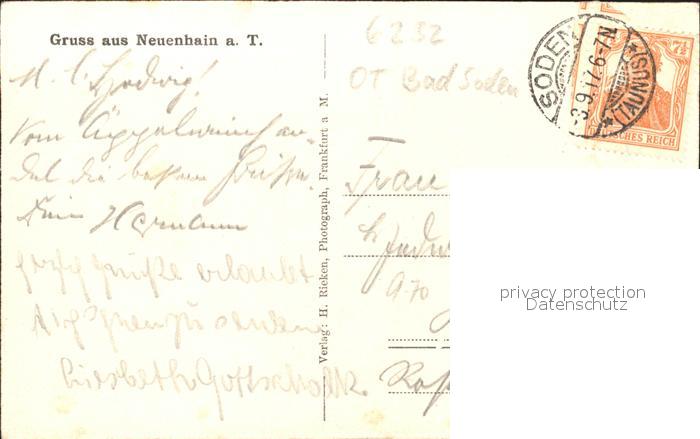 Gruss aus Neuenhain a. T.
M. l. Hedwig!
Vom Äppelweinch
die besten Grüße
Dein Hermann
erlaubt
sich Ihnen zu senden
Liesbeth Gottschalk
Verlag: H. Rieken, Photograph, Frankfurt a M.
6232
OT Bad Soden
SODEN
(TAUNUS)
-3.9.17.6-7N
7½
7½
SCHES REICH
Frau
A-70
privacy protection
Datenschutz